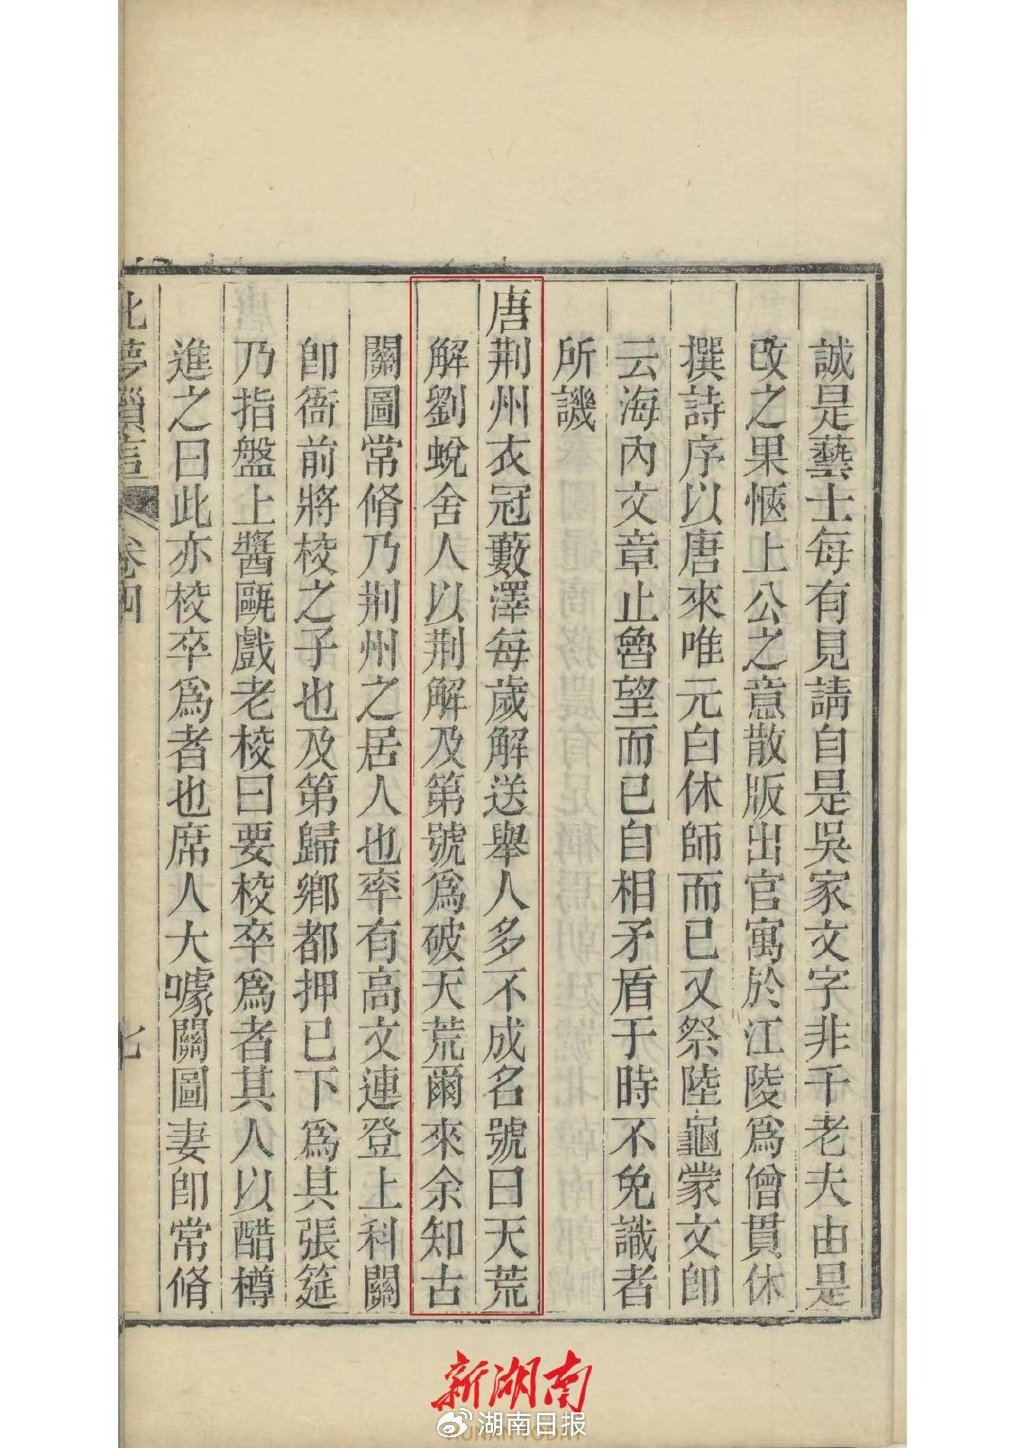 誠是藝士每有見請自是吳家文字非千老夫由是
改之果愜上公之意散版出官寓於江陵爲僧貫休
撰詩序以唐來唯元白休師而已又祭陸龜蒙文即
云海內文章止魯望而已自相矛盾于時不免識者
所譏
唐荆州衣冠藪澤每歲解送舉人多不成名號曰天荒
解劉蛻舍人以荆解及第號爲破天荒爾來余知古
關圖常脩乃荆州之居人也率有高文連登上科關
卽衙前將校之子也及第歸鄉都押已下爲其張筵
乃指盤上醬甌戲老校曰要校卒爲者其人以醋樽
進之曰此亦校卒爲者也席人大噱關圖妻卽常脩
北夢瑣言 卷四 七
新湖南
湖南日报
HUNAN TODAY